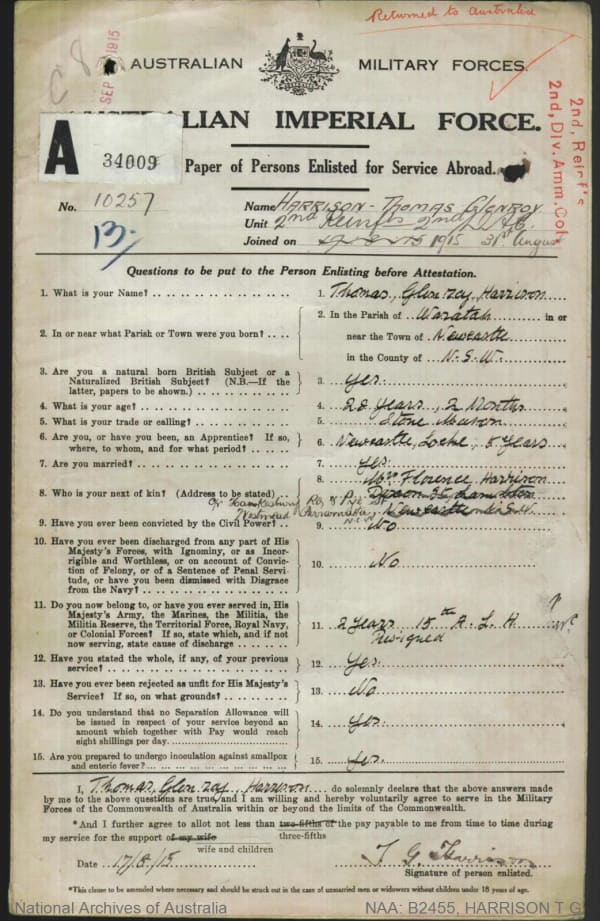 Returned to Australia
C 8
SEP 1915
AUSTRALIAN MILITARY FORCES.
AUSTRALIAN IMPERIAL FORCE.
A 34009
Paper of Persons Enlisted for Service Abroad.
2nd, Reinf's
2nd, Div. Amm. Col.
No. 10257
Name HARRISON - THOMAS GLENROY
13.
Unit 2nd Reinfs 2nd D.A.C.
Joined on 1915 31st August
Questions to be put to the Person Enlisting before Attestation.
1. What is your Name? 1. Thomas, Glenroy, Harrison
2. In or near what Parish or Town were you born? 2. In the Parish of Waratah in or
near the Town of Newcastle
in the County of N.S.W.
3. Are you a natural born British Subject or a
Naturalized British Subject? (N.B.—If the
latter, papers to be shown.) 3. Yes.
4. What is your age? 4. 28 Years, 2 Months
5. What is your trade or calling? 5. Stone Mason
6. Are you, or have you been, an Apprentice? If so,
where, to whom, and for what period? 6. Newcastle, Locke, 5 Years
7. Are you married? 7. Yes.
8. Who is your next of kin? (Address to be stated) 8. Mrs Florence Harrison
Hawkesbury Rd & Pye St Dixon St Lambton
Westmead Parramatta N.S.W. Newcastle N.S.W.
9. Have you ever been convicted by the Civil Power? 9. No
10. Have you ever been discharged from any part of His
Majesty's Forces, with Ignominy, or as Incor-
rigible and Worthless, or on account of Convic-
tion of Felony, or of a Sentence of Penal Servi-
tude, or have you been dismissed with Disgrace
from the Navy? 10. No
11. Do you now belong to, or have you ever served in, His
Majesty's Army, the Marines, the Militia, the
Militia Reserve, the Territorial Force, Royal Navy,
or Colonial Forces? If so, state which, and if not
now serving, state cause of discharge 11. 2 Years 15th A. L. H
Resigned
12. Have you stated the whole, if any, of your previous
service? 12. Yes.
13. Have you ever been rejected as unfit for His Majesty's
Service? If so, on what grounds? 13. No
14. Do you understand that no Separation Allowance will
be issued in respect of your service beyond an
amount which together with Pay would reach
eight shillings per day. 14. Yes.
15. Are you prepared to undergo inoculation against smallpox
and enteric fever? 15. Yes.
I, Thomas, Glenroy, Harrison do solemnly declare that the above answers made
by me to the above questions are true, and I am willing and hereby voluntarily agree to serve in the Military
Forces of the Commonwealth of Australia within or beyond the limits of the Commonwealth.
*And I further agree to allot not less than two-fifths of the pay payable to me from time to time during
three-fifths
my service for the support of my wife
wife and children
Date 17/8/15 T G Harrison
Signature of person enlisted.
*This clause to be amended where necessary and should be struck out in the case of unmarried men or widowers without children under 18 years of age.
National Archives of Australia NAA: B2455, HARRISON T G